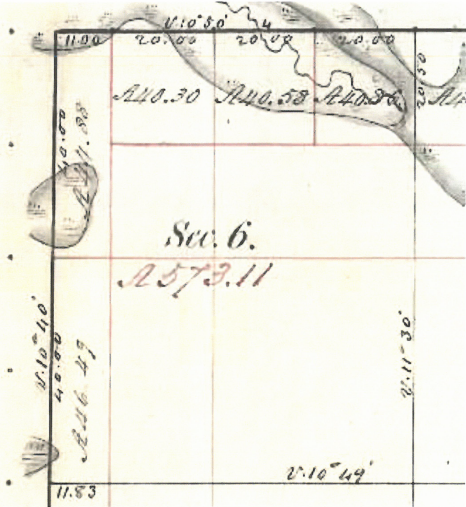 V. 10° 50'
4
11.00
20.00
20.00
20.00
A 40.30
A 40.58
A 40.86
20.50
40.00
Sec. 6.
A 573.11
V. 10° 40'
40.00
A 46.49
V. 11° 30'
V. 10° 49'
11.83